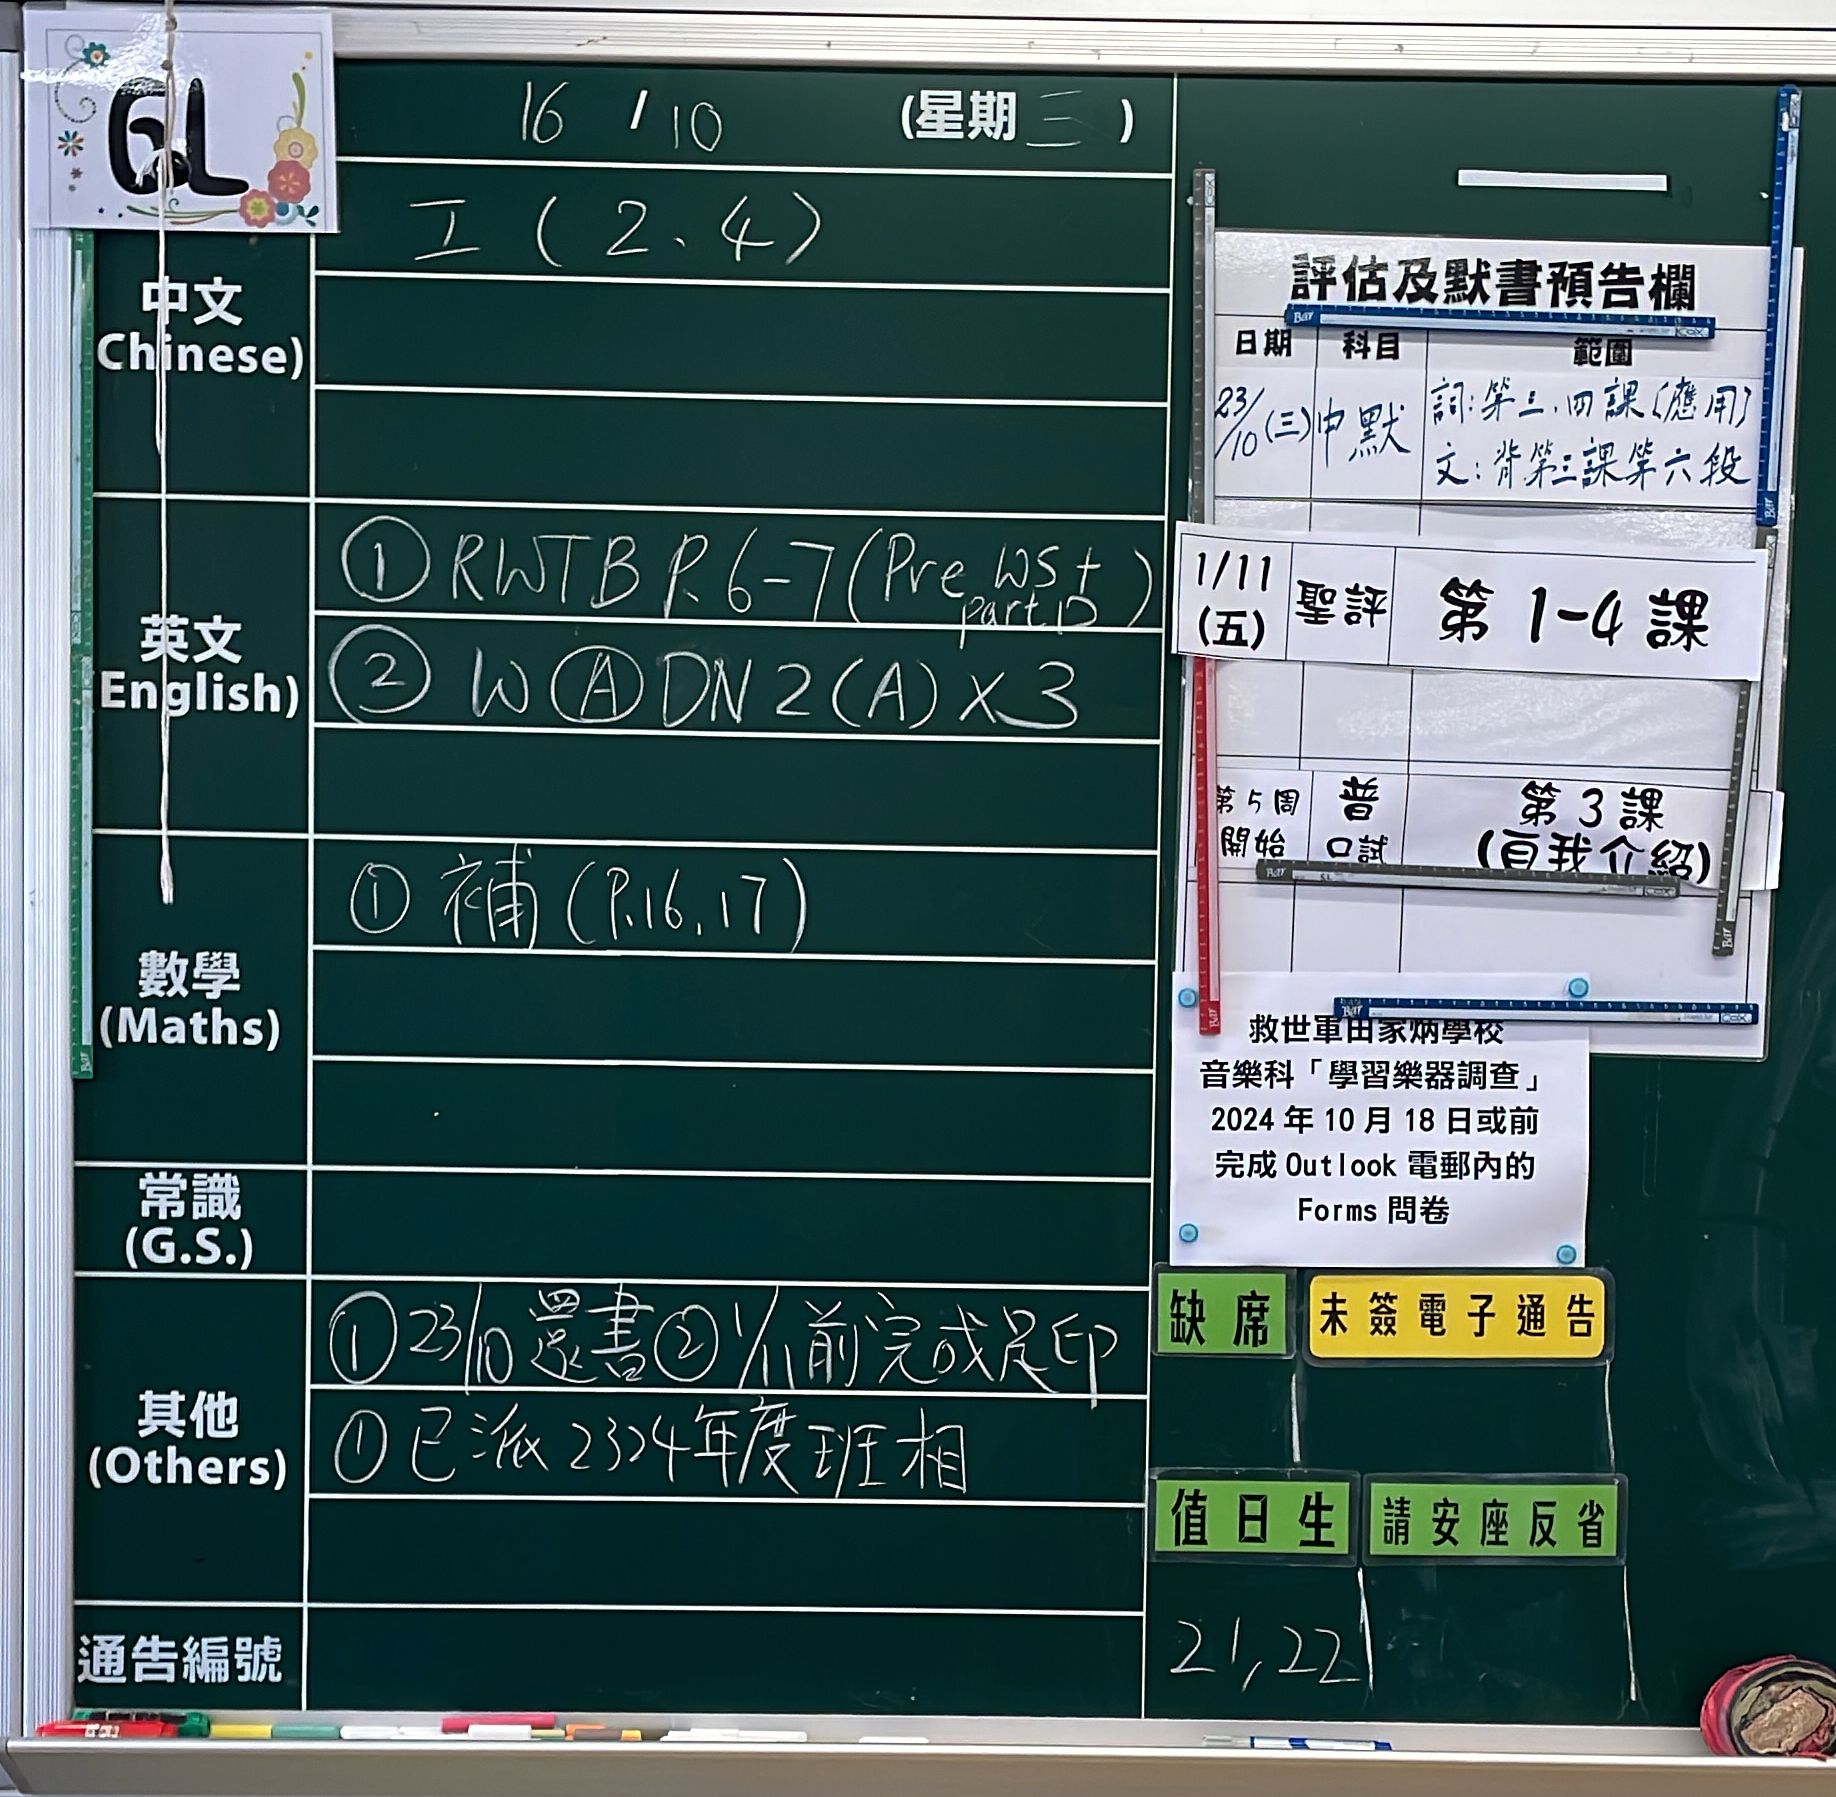 6L
16 / 10 (星期三)
中文
Chinese)
工(2、4)
英文
English)
① RWTB P.6-7 (Pre WS +
part D)
② W Ⓐ DN 2 (A) x 3
數學
(Maths)
① 補 (P.16, 17)
常識
(G.S.)
其他
(Others)
① 23/10 還書 ② 1/11前完成足印
① 已派2324年度班相
通告編號
評估及默書預告欄
日期 科目 範圍
23/10(三) 中默 詞:第三、四課(應用)
文:背第三課第六段
1/11
(五) 聖評 第1-4課
第5周
開始 普
口試 第3課
(自我介紹)
救世軍田家炳學校
音樂科「學習樂器調查」
2024年10月18日或前
完成Outlook電郵內的
Forms問卷
缺席 未簽電子通告
值日生 請安座反省
21,22